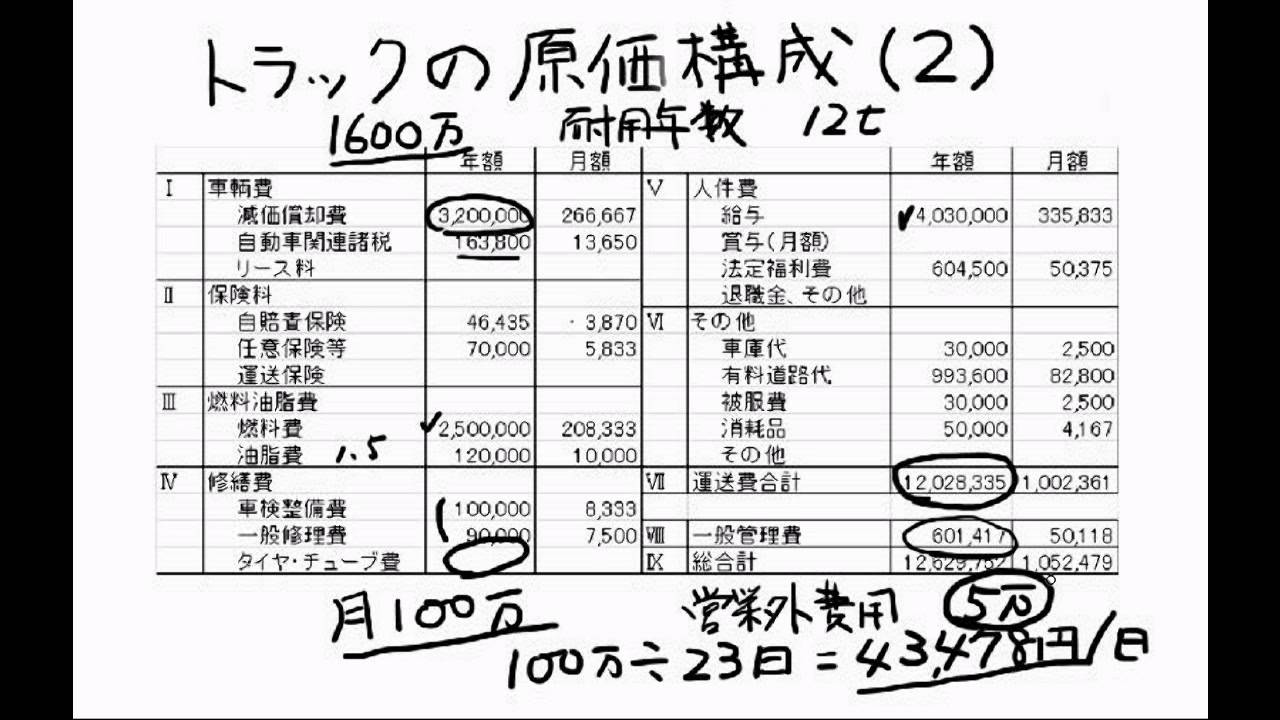 トラックの原価構成(2)
1600万 耐用年数 12t
年額 月額 年額 月額
Ⅰ 車輌費 Ⅴ 人件費
減価償却費 3,200,000 266,667 給与 4,030,000 335,833
自動車関連諸税 163,800 13,650 賞与(月額)
リース料 法定福利費 604,500 50,375
Ⅱ 保険料 退職金、その他
自賠責保険 46,435 3,870 Ⅵ その他
任意保険等 70,000 5,833 車庫代 30,000 2,500
運送保険 有料道路代 993,600 82,800
Ⅲ 燃料油脂費 被服費 30,000 2,500
燃料費 2,500,000 208,333 消耗品 50,000 4,167
油脂費 1.5 120,000 10,000 その他
Ⅳ 修繕費 Ⅶ 運送費合計 12,028,335 1,002,361
車検整備費 100,000 8,333
一般修理費 90,000 7,500 Ⅷ 一般管理費 601,417 50,118
タイヤ・チューブ費 Ⅸ 総合計 12,629,752 1,052,479
月100万 営業外費用 5万
100万÷23日=43,478円/日